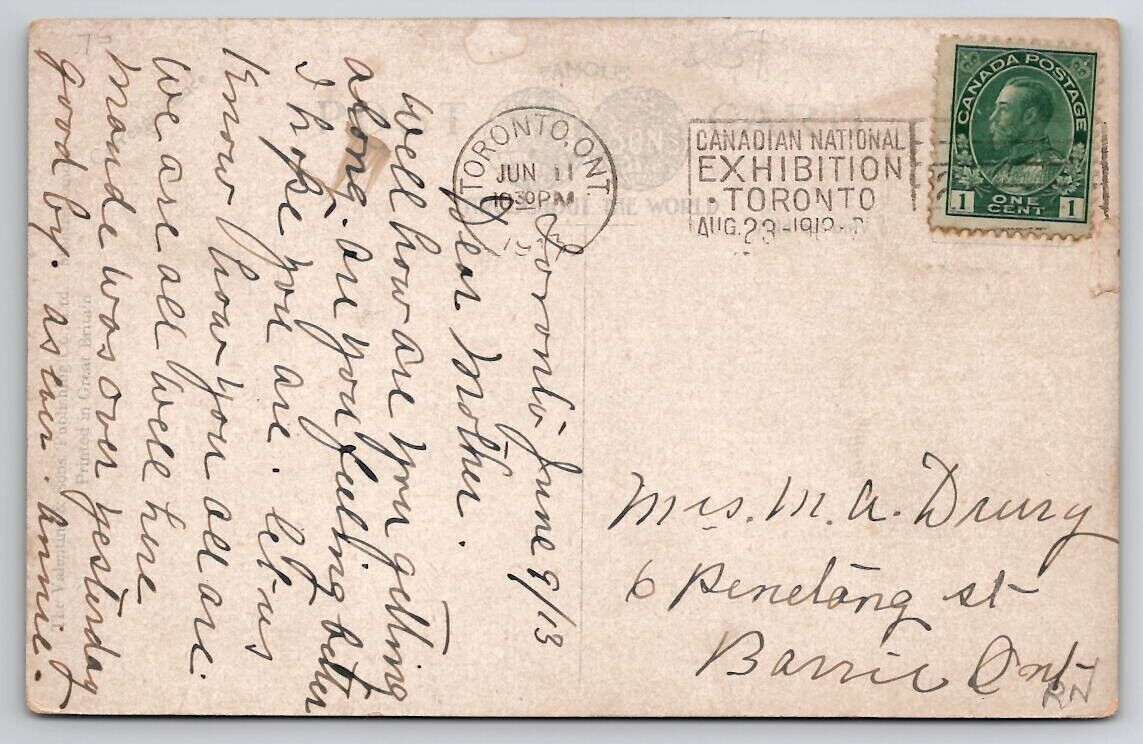 FAMOUS
POST CARD
THROUGHOUT THE WORLD
TORONTO, ONT.
JUN 11
10 30 PM
CANADIAN NATIONAL
EXHIBITION
TORONTO
AUG. 23 - 1913 -
CANADA POSTAGE
1 ONE CENT 1
Toronto June 9/13
Dear Mother.
Well how are you getting
along. are you feeling better
I hope you are. let us
Know how you all are.
We are all well here
Maude was over yesterday
good by. as ever. annie.
The Valentine & Sons Publishing Co. Ltd.
Printed in Great Britain
Mrs. M. A. Drury
6 Penetang st
Barrie Ont